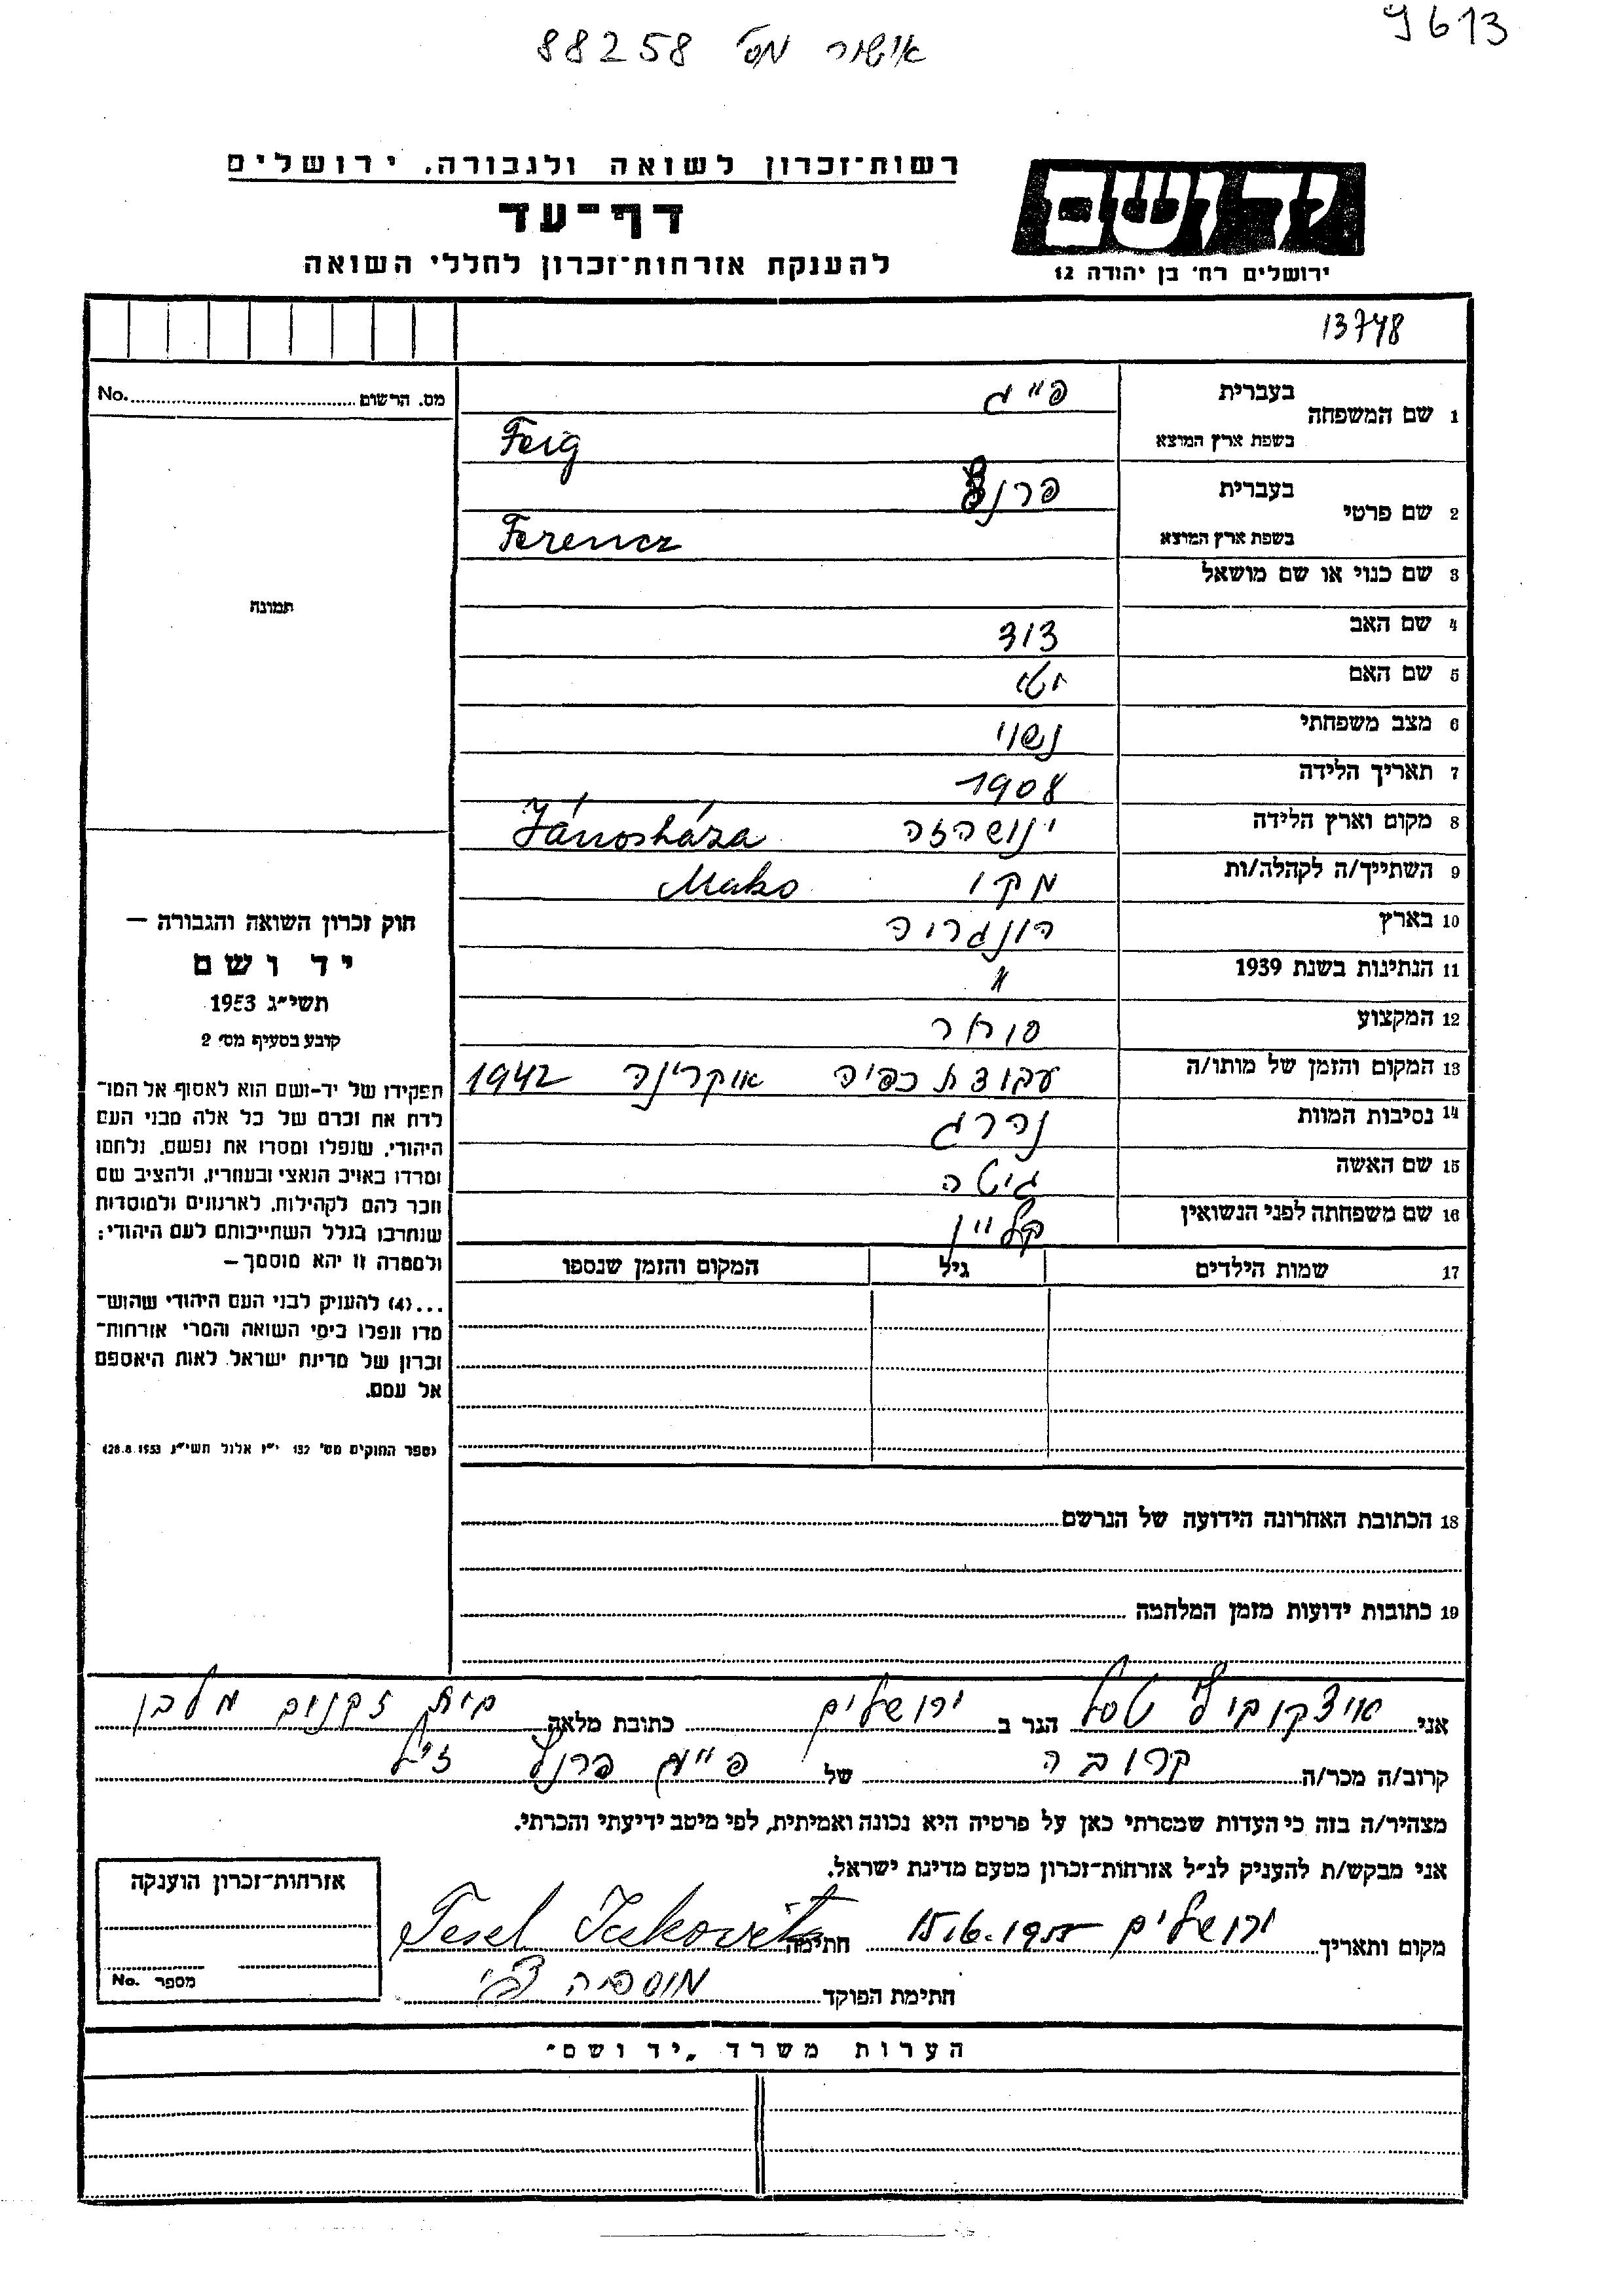 9613
אישור מס' 88258
רשות־זכרון לשואה ולגבורה, ירושלים
יד ושם
דף־עד
ירושלים רח' בן יהודה 12
להענקת אזרחות־זכרון לחללי השואה
13748
מס. הרשום No.
תמונה
1 שם המשפחה בעברית פייג
בשפת ארץ המוצא Feig
2 שם פרטי בעברית פרנץ
בשפת ארץ המוצא Ferencz
3 שם כנוי או שם מושאל
4 שם האב דוד
5 שם האם יטי
6 מצב משפחתי נשוי
7 תאריך הלידה 1908
8 מקום וארץ הלידה ינושהזה Jánosháza
9 השתייך/ה לקהלה/ות מקו Mako
10 בארץ הונגריה
11 הנתינות בשנת 1939 "
12 המקצוע סוחר
13 המקום והזמן של מותו/ה עבודת כפיה אוקרינה 1942
14 נסיבות המוות נהרג
15 שם האשה גיטה
16 שם משפחתה לפני הנשואין קליין
17 שמות הילדים גיל המקום והזמן שנספו
18 הכתובת האחרונה הידועה של הנרשם
19 כתובות ידועות מזמן המלחמה
חוק זכרון השואה והגבורה —
יד ושם
תשי"ג 1953
קובע בסעיף מס' 2
תפקידו של יד-ושם הוא לאסוף אל המו־
לדת את זכרם של כל אלה מבני העם
היהודי, שנפלו ומסרו את נפשם, נלחמו
ומרדו באויב הנאצי ובעוזריו, ולהציב שם
וזכר להם לקהילות, לארגונים ולמוסדות
שנחרבו בגלל השתייכותם לעם היהודי;
ולמטרה זו יהא מוסמך —
...(4) להעניק לבני העם היהודי שהוש־
מדו ונפלו בימי השואה והמרי אזרחות־
זכרון של מדינת ישראל לאות היאספם
אל עמם.
(ספר החוקים מס' 132 י"ז אלול תשי"ג 28.8.1953)
אני איצקוביץ טסל הגר ב ירושלים כתובת מלאה בית זקנים מלבן
קרוב/ה מכר/ה קרובה של פייג פרנץ ז"ל
מצהיר/ה בזה כי העדות שמסרתי כאן על פרטיה היא נכונה ואמיתית, לפי מיטב ידיעתי והכרתי.
אני מבקש/ת להעניק לנ"ל אזרחות־זכרון מטעם מדינת ישראל.
מקום ותאריך ירושלים 15.6.1955 חתימה Tesel Ickovits
חתימת הפוקד
אזרחות־זכרון הוענקה
מספר No.
הערות משרד „יד ושם"